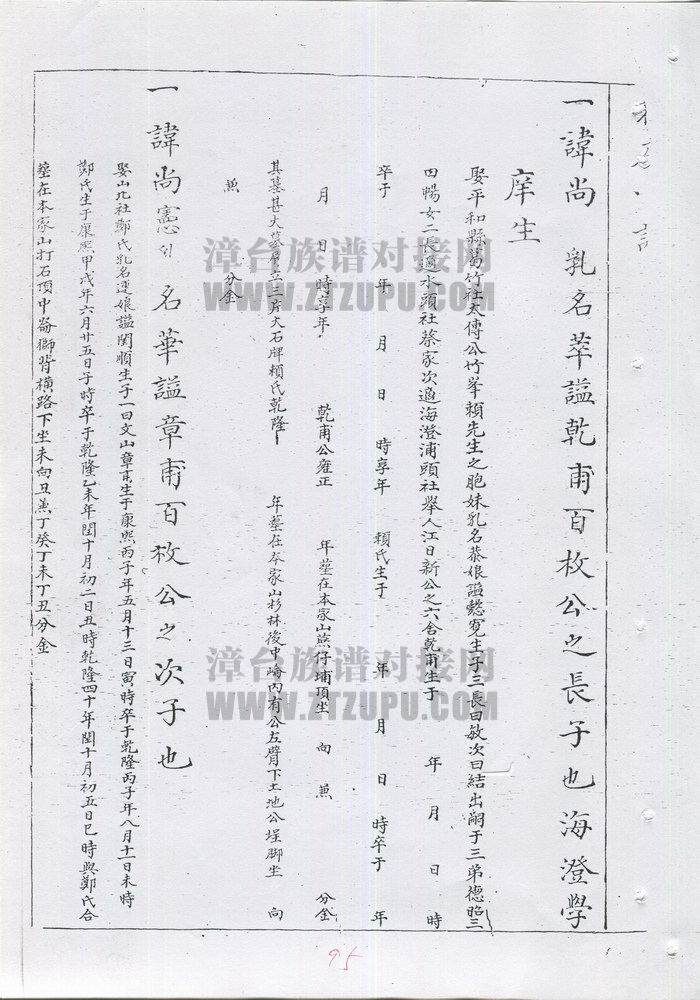 一諱尚 乳名萃謚乾甫百枚公之長子也海澄學
庠生
娶平和縣葛竹社太傅公竹峯賴先生之胞妹乳名恭娘謚懿寬生子三長曰敏次曰結出嗣于三弟德昭三
曰暢女二長適水頭社蔡家次適海澄浦頭社舉人江日新公之六舍乾甫生于 年 月 日 時
卒于 年 月 日 時享年 賴氏生于 年 月 日 時卒于 年
月 日 時享年 乾甫公雍正 年塟在本家山燕仔埔頂坐 向 兼 分金
其墓甚大墓 立三片大石牌賴氏乾隆 年塟在本家山杉林後中崙內有公左臂下土地公埕脚坐 向
兼 分金
一諱尚憲 名華謚章甫百枚公之次子也
娶山北社鄭氏乳名運娘謚閨順生子一曰文山章甫生于康熙丙子年五月十三日寅時卒于乾隆丙子年八月十一日未時
鄭氏生于康熙甲戌年六月廿五日子時卒于乾隆乙未年閏十月初二日丑時乾隆四十年閏十月初五日巳時與鄭氏合
塟在本家山打石頂中崙獅背橫路下坐未向丑兼丁癸丁未丁丑分金
漳台族谱对接网
WWW.ZTZUPU.COM
漳台族谱对接网
WWW.ZTZUPU.COM
95